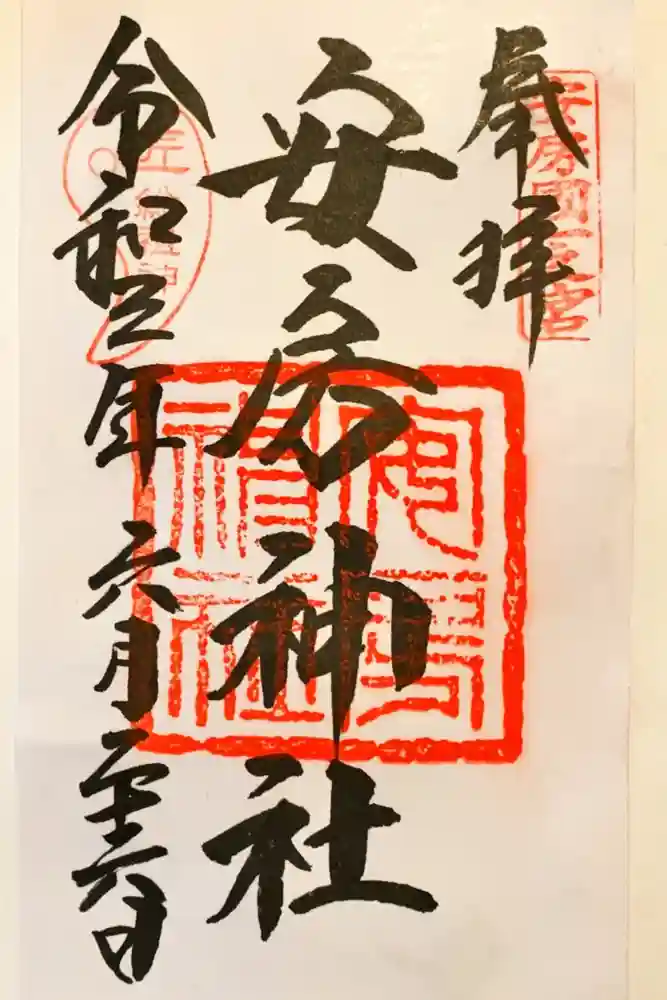 安房國一之宮
奉拝
安房神社
安房神社
令和三年六月二十六日